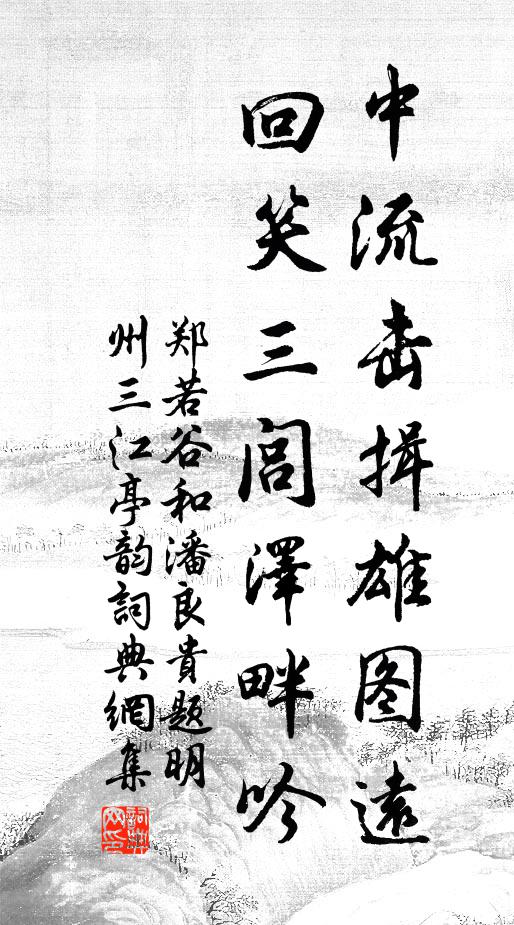 中流击揖雄图遠
回笑三闾澤畔吟
郑若谷和潘良貴题明
州三江亭韵詞典網集